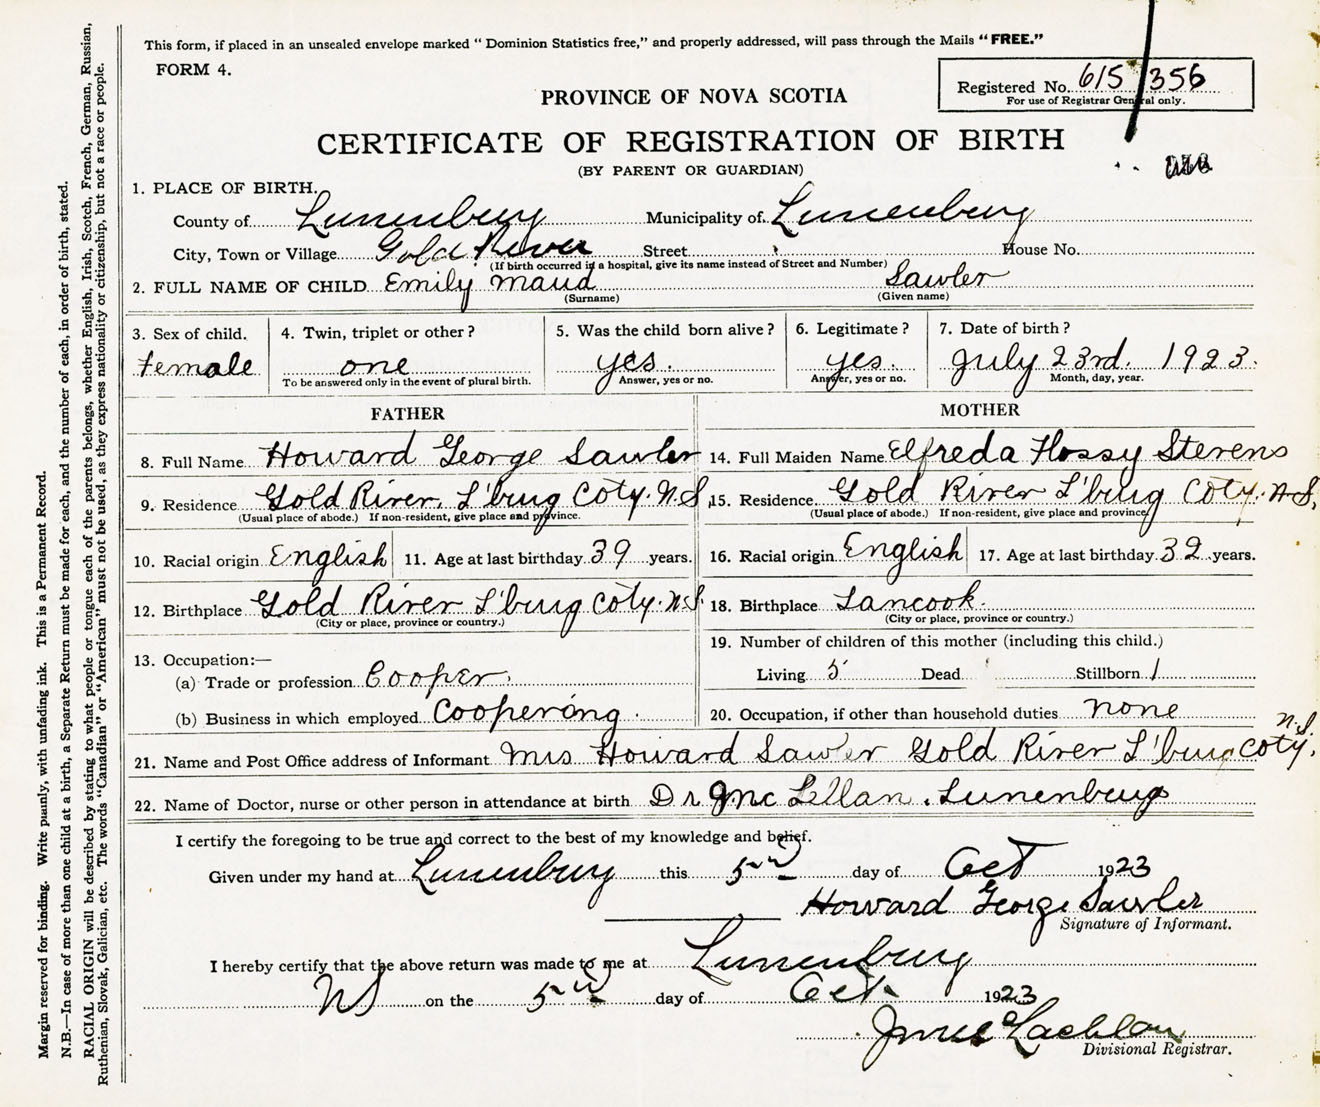 This form, if placed in an unsealed envelope marked "Dominion Statistics free," and properly addressed, will pass through the Mails "FREE."
FORM 4.
Registered No. 615 356
For use of Registrar General only.
PROVINCE OF NOVA SCOTIA
CERTIFICATE OF REGISTRATION OF BIRTH
(BY PARENT OR GUARDIAN)
1. PLACE OF BIRTH.
County of Lunenburg Municipality of Lunenburg
City, Town or Village Gold River Street House No.
(If birth occurred in a hospital, give its name instead of Street and Number)
2. FULL NAME OF CHILD Emily Maud Sawler
(Surname) (Given name)
3. Sex of child. 4. Twin, triplet or other? 5. Was the child born alive? 6. Legitimate? 7. Date of birth?
Female one yes. yes. July 23rd. 1923.
To be answered only in the event of plural birth. Answer, yes or no. Answer, yes or no. Month, day, year.
FATHER MOTHER
8. Full Name Howard George Sawler 14. Full Maiden Name Elfreda Flossy Stevens
9. Residence Gold River, L'burg Coty. N.S. 15. Residence. Gold River L'burg Coty. N.S.
(Usual place of abode.) If non-resident, give place and province. (Usual place of abode.) If non-resident, give place and province
10. Racial origin English 11. Age at last birthday 39 years. 16. Racial origin English 17. Age at last birthday. 32 years.
12. Birthplace Gold River L'burg Coty. N.S. 18. Birthplace Tancook.
(City or place, province or country.) (City or place, province or country.)
19. Number of children of this mother (including this child.)
13. Occupation:—
Living 5 Dead Stillborn 1
(a) Trade or profession Cooper.
(b) Business in which employed Coopering. 20. Occupation, if other than household duties none
21. Name and Post Office address of Informant Mrs Howard Sawler Gold River L'burg Coty. N.S.
22. Name of Doctor, nurse or other person in attendance at birth Dr Lunenburg
I certify the foregoing to be true and correct to the best of my knowledge and belief.
Given under my hand at Lunenburg this 5 day of Oct 1923
Howard George Sawler
Signature of Informant.
I hereby certify that the above return was made to me at Lunenburg
NS on the 5 day of Oct. 1923
Divisional Registrar.
Margin reserved for binding. Write plainly, with unfading ink. This is a Permanent Record.
N.B.—In case of more than one child at a birth, a Separate Return must be made for each, and the number of each, in order of birth, stated.
RACIAL ORIGIN will be described by stating to what people or tongue each of the parents belongs, whether English, Irish, Scotch, French, German, Russian,
Ruthenian, Slovak, Galician, etc. The words "Canadian" or "American" must not be used, as they express nationality or citizenship, but not a race or people.